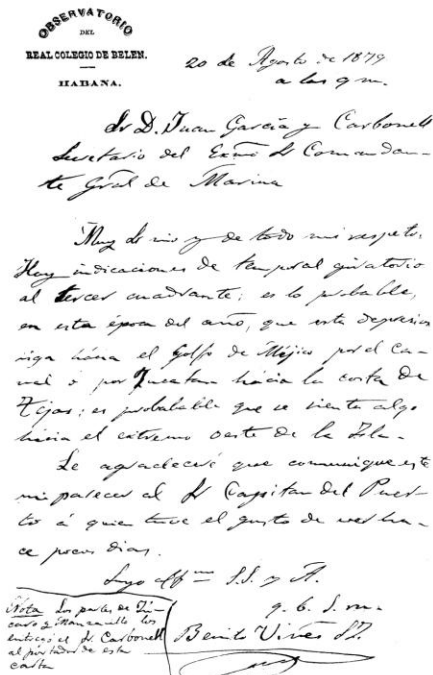 OBSERVATORIO
DEL
REAL COLEGIO DE BELEN.
HABANA.
20 de Agosto de 1879
a las 9 m.
Sr D. Juan García y Carbonell
Secretario del Exmo Sr Comandan-
te Gral de Marina
Muy Sr mio y de todo mi respeto:
Hay indicaciones de temporal giratorio
al tercer cuadrante; es lo probable,
en esta época del año, que esta depresion
siga hácia el Golfo de Méjico por el Ca-
nal ó por Yucatan hácia la costa de
Tejas; es probalable que se sienta algo
hácia el extremo oeste de la Isla.
Le agradeceré que comunique este
mi parecer al Sr Capitan del Puer-
to á quien tuve el gusto de ver ha-
ce pocos dias.
Suyo affmo S.S. y A.
q. b. s. m.
Benito Viñes SJ.
Nota Los partes de
y Manzanillo los
entregó el Sr Carbonell
al portador de esta
carta